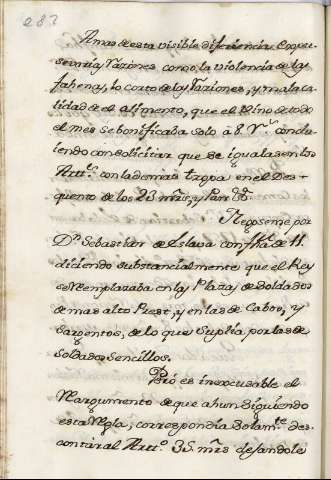 283
Amas de esta visible diferiencia Expu-
se varias razones, como, la violencia de las
fahenas, lo corto de las raziones, y mala ca-
lidad de el alimento, que el Vino de todo
el mes se bonificaba solo a 8 R.s conclu-
iendo con solicitar que se igualasen los
Artt.s con la demas tropa en el Des-
quento de los 23 mrs, y Pan &.
Negoseme por
D.n Sebastian de Eslava con fha de 11
diciendo substancialmente que el Rey
se Reemplazaba en las Plazas de Soldados
de mas alto Prest, y en las de Cabos, y
Sargentos, de lo que Suplia por las de
Soldados Sencillos.
Pero es inexcusable el
Argumento de que ahun siguiendo
esta Regla, correspondia Solam.te des-
contar al Artt.o 35 mrs dejandole